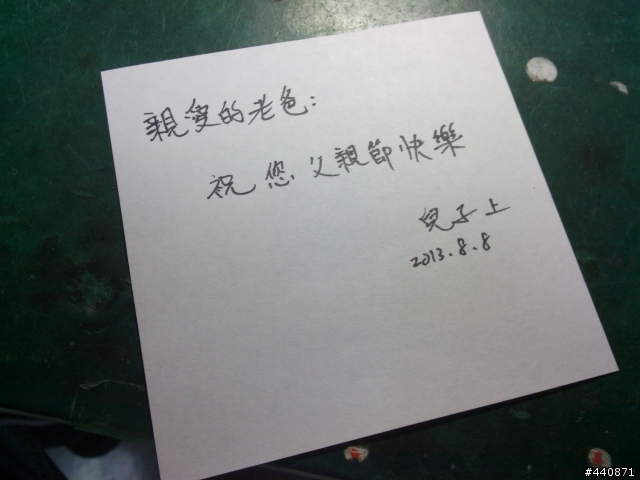 親愛的老爸：
祝您父親節快樂
兒子上
2013.8.8
#440871